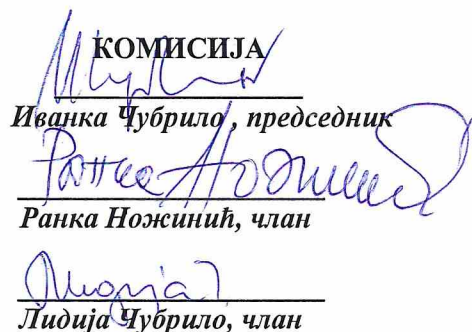 КОМИСИЈА
Иванка Чубрило , председник
Ранка Ножинић
Ранка Ножинић, члан
Лидија Чубрило, члан